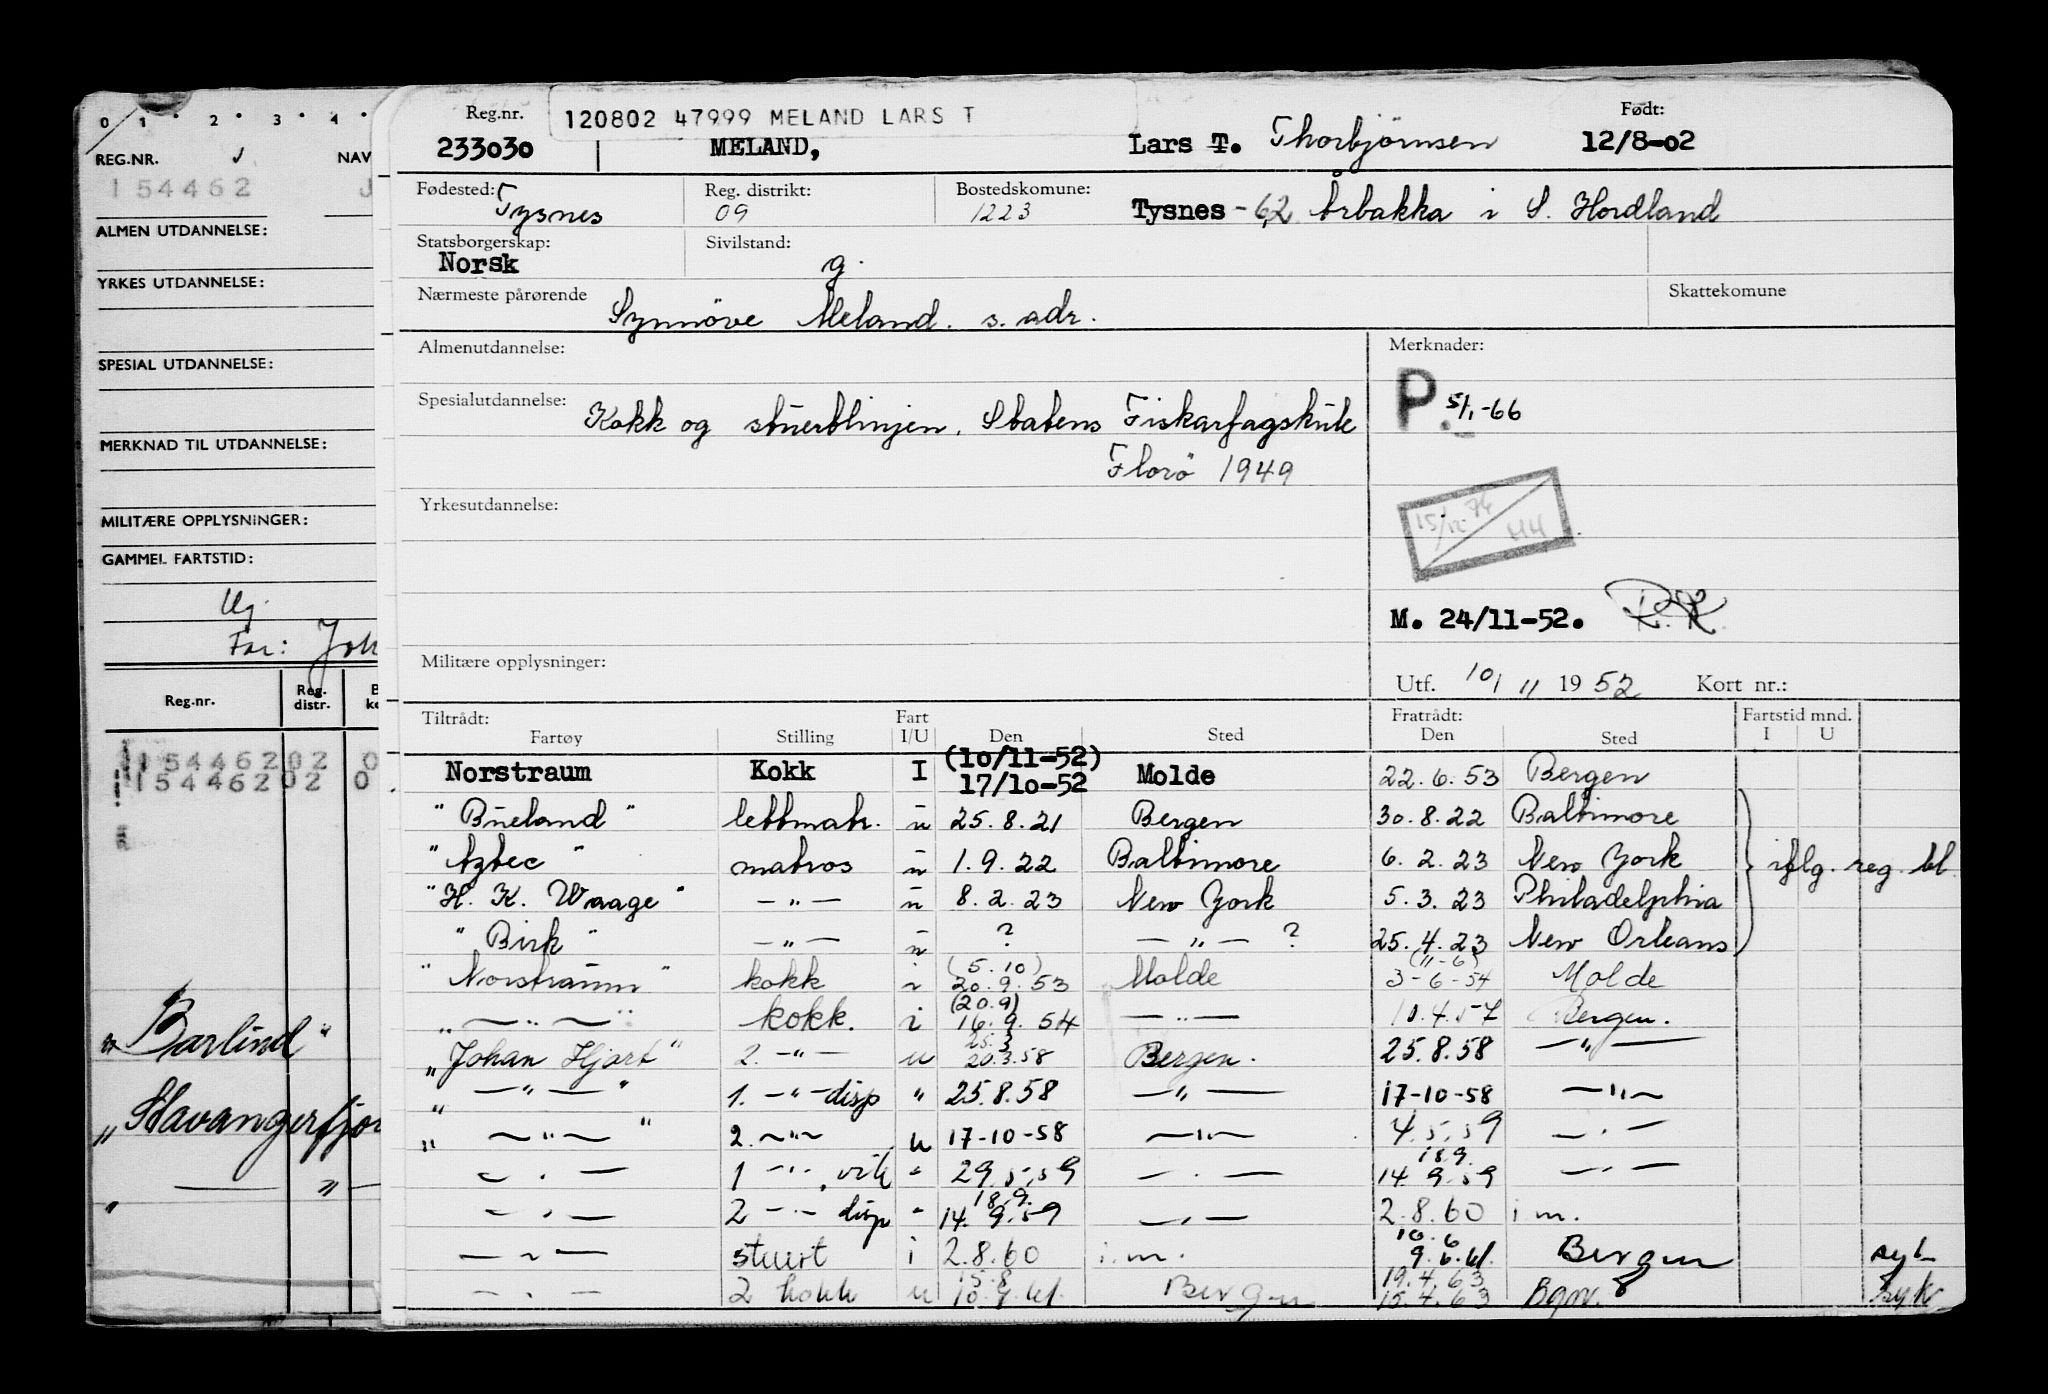 0 1 2 3 4
REG.NR. NAV
154462 J
ALMEN UTDANNELSE:
YRKES UTDANNELSE:
SPESIAL UTDANNELSE:
MERKNAD TIL UTDANNELSE:
MILITÆRE OPPLYSNINGER:
GAMMEL FARTSTID:
Ug.
Far: Joh
Reg.nr. Reg. distr. B ke
154462 02 0
154462 02 0
"Barlind"
"Stavangerfjor
— " —
120802 47999 MELAND LARS T
Reg.nr. Født:
233030 MELAND, Lars T. Thorbjørnsen 12/8-02
Fødested: Tysnes Reg. distrikt: 09 Bostedskomune: 1223 Tysnes - 62 Årbakka i S. Hordland
Statsborgerskap: Norsk Sivilstand: g.
Nærmeste pårørende Synnöve Meland. s. adr. Skattekomune
Almenutdannelse: Merknader:
Spesialutdannelse: Kokk og stuertlinjen, Statens Fiskarfagskule
Florö 1949
P. 5/1-66
Yrkesutdannelse:
15/12 74 HH
M. 24/11-52. R.K.
Militære opplysninger:
Utf. 10/11 1952 Kort nr.:
Tiltrådt: Fart Fratrådt: Fartstid mnd.
Fartøy Stilling I/U Den Sted Den Sted I U
(10/11-52)
Norstraum Kokk I 17/10-52 Molde 22.6.53 Bergen
"Bueland" lettmatr. u 25.8.21 Bergen 30.8.22 Baltimore
"Aztec" matros u 1.9.22 Baltimore 6.2.23 New York iflg. reg. bl.
"H. K. Waage" — " — u 8.2.23 New York 5.3.23 Philadelphia
"Birk" — " — u ? — " — ? 25.4.23 New Orleans
(5.10) (11-6)
"Norstraum" kokk i 20.9.53 Molde 3-6-54 Molde
(20.9)
" — " — " kokk. i 16.9.54 — " — 10.4.57 Bergen.
25.3
"Johan Hjort" 2. — " — u 20.3.58 Bergen. 25.8.58 — " —
" — " — " 1. — " — disp " 25.8.58 — " — 17-10-58 — " —
" — " — " 2. — " — u 17-10-58 — " — 4.5.59 — " —
18.9.
— " — 1 — " — vik " 29.5.59 — " — 14.9.59 — " —
18.9.
— " — 2 — " — disp " 14.9.59 — " — 2.8.60 i.m.
10.6
— " — stuert i 2.8.60 i.m. 9.6.61. Bergen syk
15.8 19.4.63
— " — 2 kokk u 10.9.61. Bergen 15.4.63 Bgn. syk